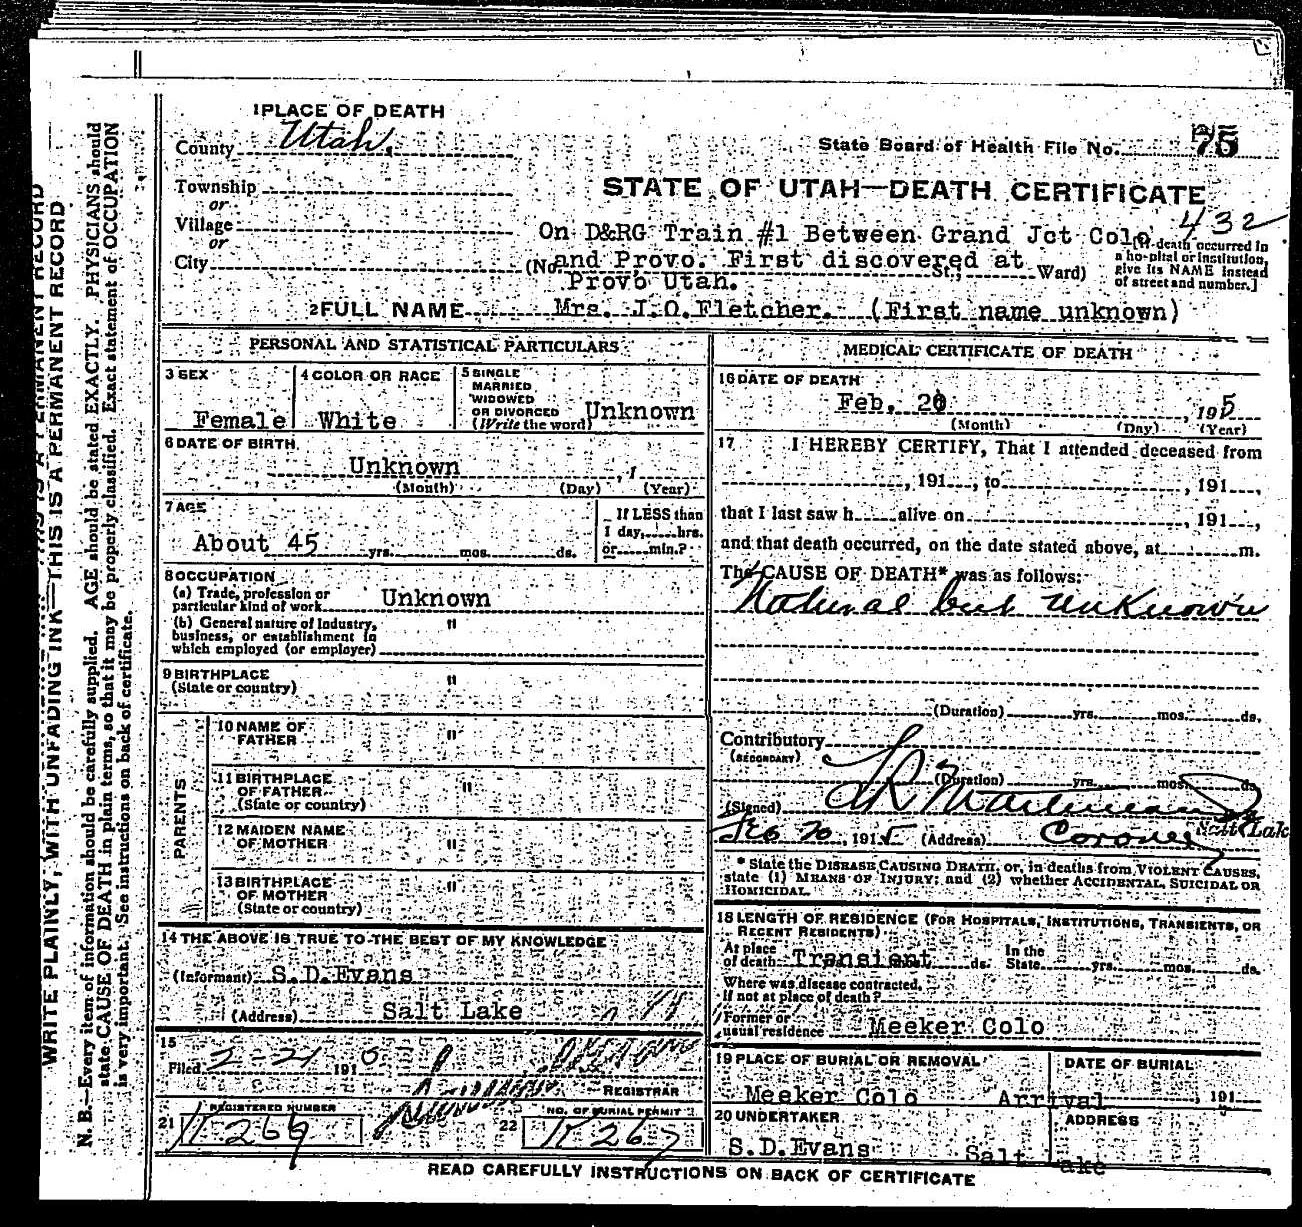 1 PLACE OF DEATH
County Utah.
State Board of Health File No. 75
Township
or
STATE OF UTAH—DEATH CERTIFICATE
Village
or
432
On D&RG Train #1 Between Grand Jct Colo
City (No. and Provo. First discovered at St.; Ward)
Provo Utah.
[If death occurred in
a hospital or institution,
give its NAME instead
of street and number.]
2 FULL NAME Mrs. J.O.Fletcher. (First name unknown)
PERSONAL AND STATISTICAL PARTICULARS
3 SEX
Female
4 COLOR OR RACE
White
5 SINGLE
MARRIED
WIDOWED
OR DIVORCED
(Write the word)
Unknown
6 DATE OF BIRTH
Unknown , 1
(Month) (Day) (Year)
7 AGE
About 45 yrs. mos. ds.
If LESS than
1 day, hrs.
or min.?
8 OCCUPATION
(a) Trade, profession or
particular kind of work Unknown
(b) General nature of Industry,
business, or establishment in
which employed (or employer) "
9 BIRTHPLACE
(State or country) "
PARENTS
10 NAME OF
FATHER "
11 BIRTHPLACE
OF FATHER
(State or country) "
12 MAIDEN NAME
OF MOTHER "
13 BIRTHPLACE
OF MOTHER
(State or country) "
14 THE ABOVE IS TRUE TO THE BEST OF MY KNOWLEDGE
(Informant) S.D.Evans
(Address) Salt Lake
15
Filed 2-21 191
REGISTRAR
21 REGISTERED NUMBER
K 269
22 NO. OF BURIAL PERMIT
K 267
MEDICAL CERTIFICATE OF DEATH
16 DATE OF DEATH
Feb. 20 , 1915
(Month) (Day) (Year)
17 I HEREBY CERTIFY, That I attended deceased from
, 191 , to , 191 ,
that I last saw h alive on , 191 ,
and that death occurred, on the date stated above, at m.
The CAUSE OF DEATH* was as follows:
Natural but unknown
(Duration) yrs. mos. ds.
Contributory
(SECONDARY)
(Duration) yrs. mos. ds.
(Signed)
Feb 20, 1915 (Address) Coroner Salt Lak
* State the DISEASE CAUSING DEATH, or, in deaths from VIOLENT CAUSES,
state (1) MEANS OF INJURY; and (2) whether ACCIDENTAL, SUICIDAL OR
HOMICIDAL.
18 LENGTH OF RESIDENCE (FOR HOSPITALS, INSTITUTIONS, TRANSIENTS, OR
RECENT RESIDENTS)
At place
of death Transient ds.
In the
State yrs. mos. ds.
Where was disease contracted,
if not at place of death?
Former or
usual residence Meeker Colo
19 PLACE OF BURIAL OR REMOVAL
Meeker Colo
DATE OF BURIAL
Arrival , 191
20 UNDERTAKER
S.D.Evans
ADDRESS
Salt Lake
READ CAREFULLY INSTRUCTIONS ON BACK OF CERTIFICATE
WRITE PLAINLY, WITH UNFADING INK—THIS IS A PERMANENT RECORD
N. B.—Every item of information should be carefully supplied. AGE should be stated EXACTLY. PHYSICIANS should
state CAUSE OF DEATH in plain terms, so that it may be properly classified. Exact statement of OCCUPATION
is very important. See instructions on back of certificate.